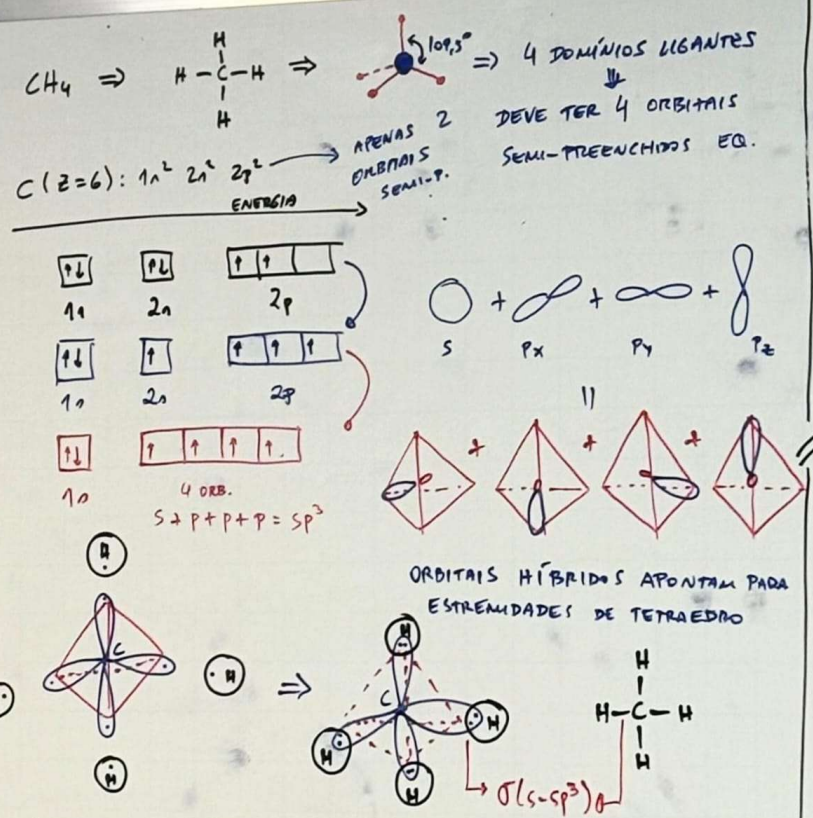 CH4 ⇒ H-C-H ⇒ 109,5° ⇒ 4 DOMÍNIOS LIGANTES
H
H
⇓
DEVE TER 4 ORBITAIS
SEMI-PREENCHIDOS EQ.
C (Z=6): 1s² 2s² 2p² → APENAS 2
ORBITAIS
SEMI-P.
ENERGIA
↑↓ ↑↓ ↑ ↑
1s 2s 2p
↑↓ ↑ ↑ ↑ ↑
1s 2s 2p
↑↓ ↑ ↑ ↑ ↑.
1s 4 ORB.
S+P+P+P = SP³
+ + +
S Px Py Pz
=
+ + +
ORBITAIS HÍBRIDOS APONTAM PARA
ESTREMIDADES DE TETRAEDRO
H
C
·H
H
⇒
H
C
H
H
H
H
H-C-H
H
σ(s-sp³)